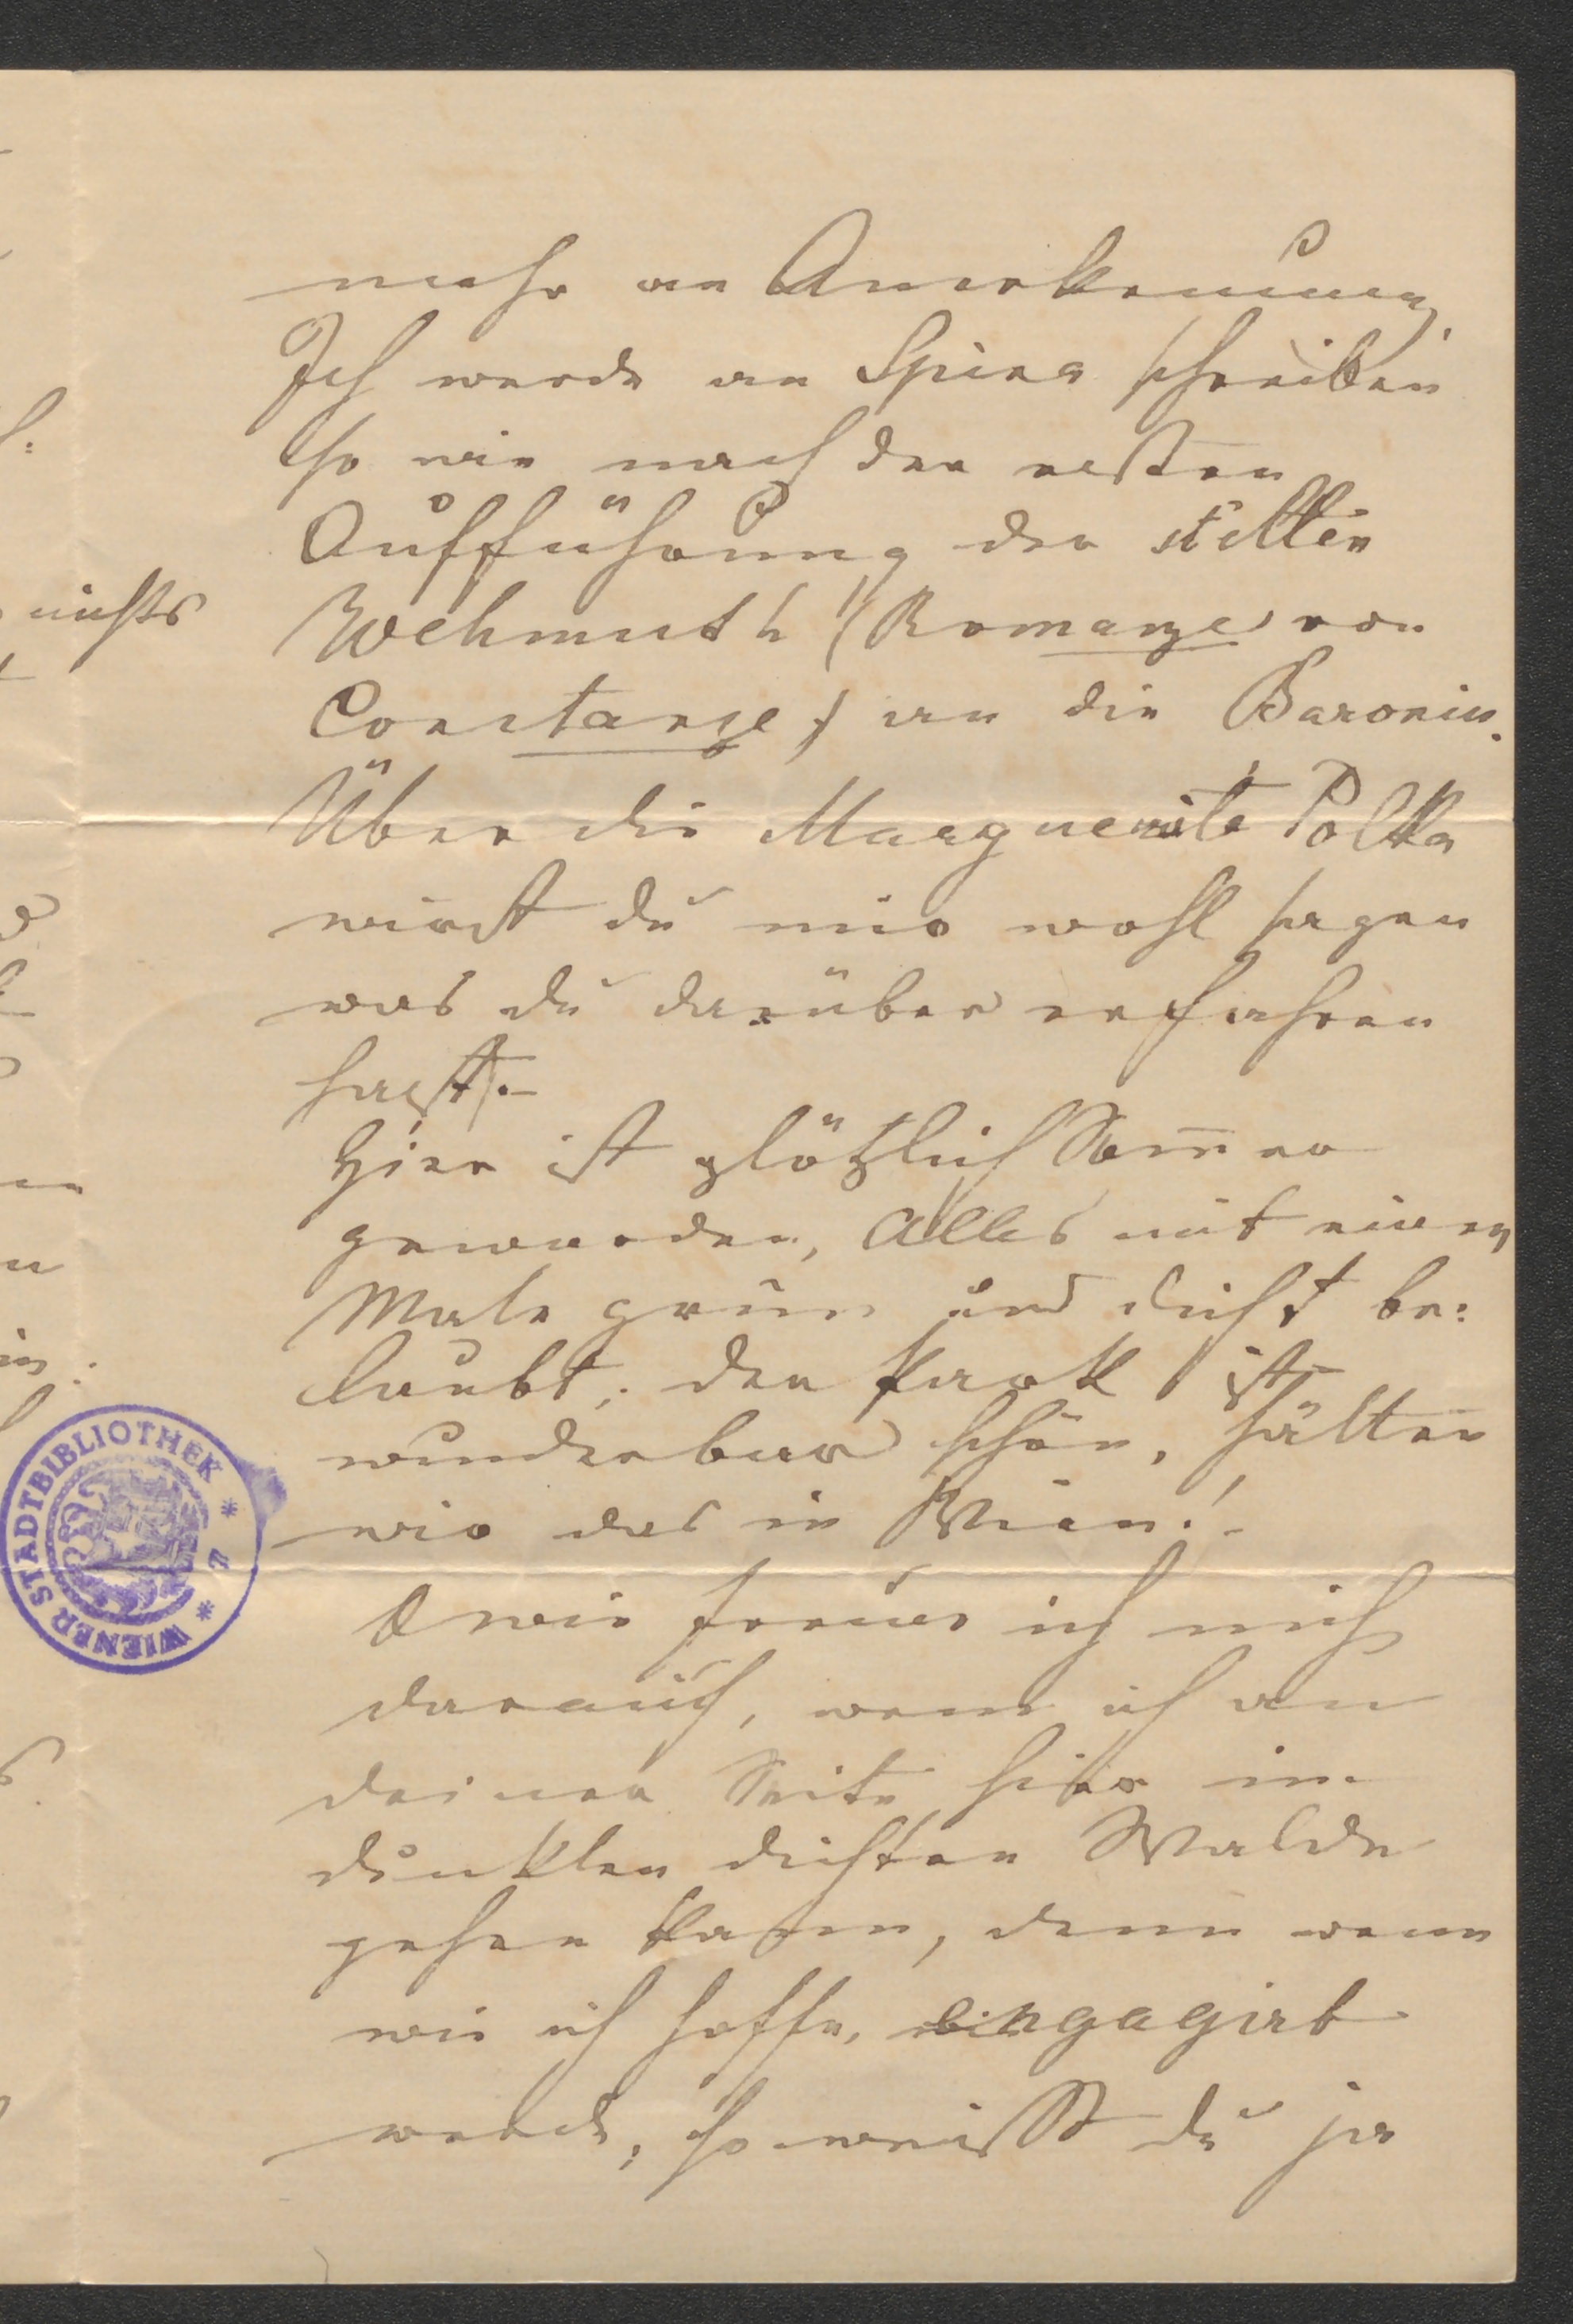 mehr an Anerkennung.
Ich werde an Spina schreiben
so wie nach der ersten
Aufführung der stillen
Wehmuth (Romanze von
Constanze) an die Baronin.
Über die Marguerite Polka
wirst du mir wohl sagen
was du darüber erfahren
hast.–
Hier ist plötzlich Som̅er
geworden, Alles mit einem
Male grün und dicht be:
laubt; der Park ist
wunderbar schön, hätten
wir das in Wien!–
O wie freue ich mich
darauf, wenn ich an
deiner Seite hier im
dunklen dichten Walde
gehen kann, denn wenn
wie ich hoffe, engagirt
werde, so weißt du ja
nichts
WIENER STADTBIBLIOTHEK